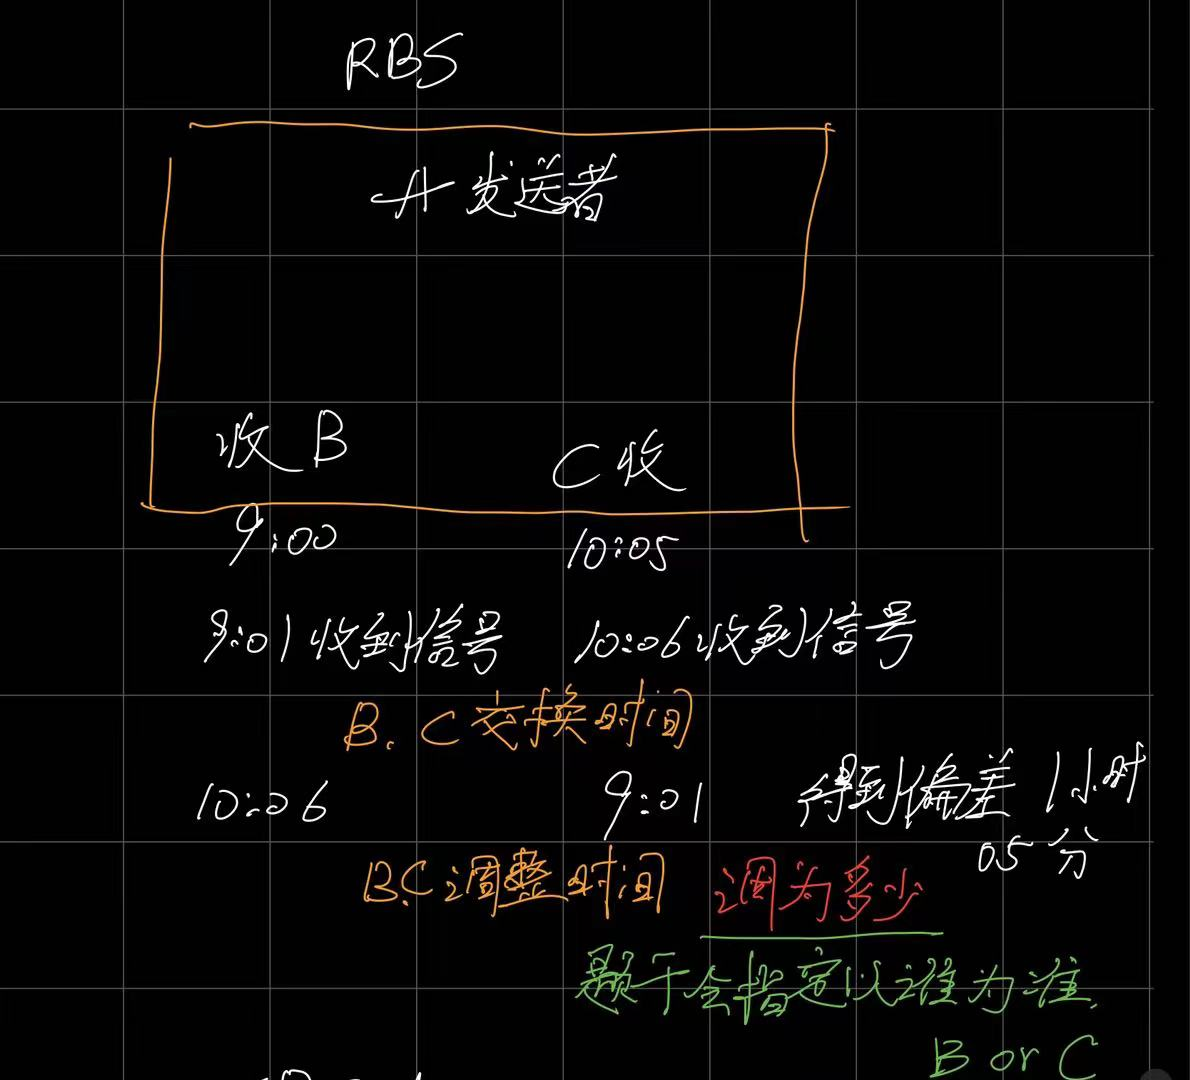 RBS
A 发送者
收 B
C 收
9:00
10:05
9:01收到信号
10:06收到信号
B. C 交换时间
10:06
9:01
得到偏差 1小时
05分
B.C 调整时间
调为多少
题干会指定以谁为准.
B or C